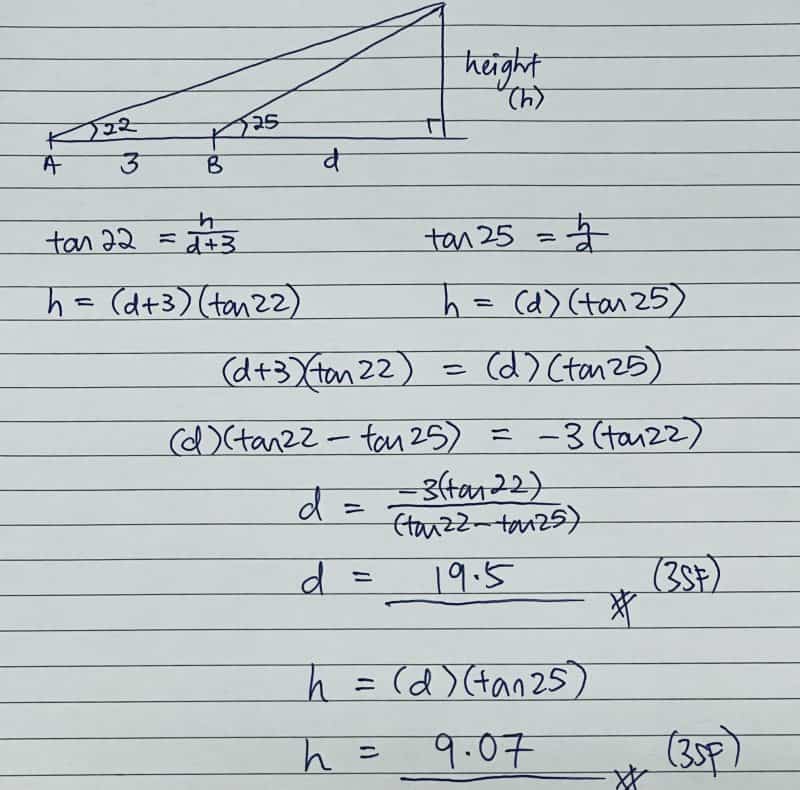 height
(h)
22 25
A 3 B d
tan 22 = h/(d+3) tan 25 = h/d
h = (d+3)(tan 22) h = (d)(tan 25)
(d+3)(tan 22) = (d)(tan 25)
(d)(tan22 - tan 25) = -3(tan22)
d = -3(tan 22)/(tan22-tan25)
d = 19.5 (3SF)
h = (d)(tan25)
h = 9.07 (3SF)